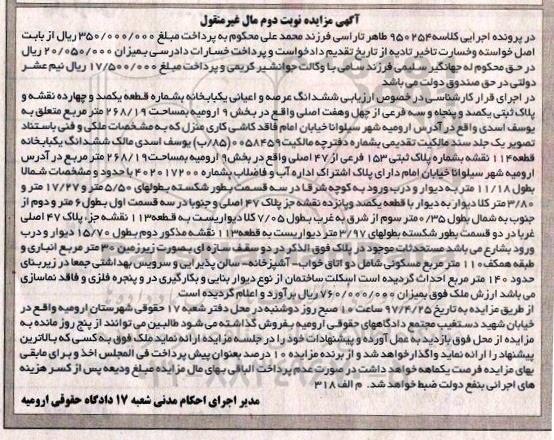 آگهی مزایده نوبت دوم مال غیرمنقول
در پرونده اجرایی کلاسه ۹۵۰۲۵۴ طاهر تاراسی فرزند محمد علی محکوم به پرداخت مبلغ ۳۵۰/۰۰۰/۰۰۰ ریال از بابت
اصل خواسته وخسارت تاخیر تادیه از تاریخ تقدیم دادخواست و پرداخت خسارات دادرسی بمیزان ۲۰/۰۵۰/۰۰۰ ریال
در حق محکوم له جهانگیر سلیمی فرزند سامی با وکالت جوانشیر کریمی و پرداخت مبلغ ۱۷/۵۰۰/۰۰۰ ریال نیم عشر
دولتی در حق صندوق دولت می باشد
در اجرای قرار کارشناسی در خصوص ارزیابی ششدانگ عرصه و اعیانی یکبابخانه بشماره قطعه یکصد و چهارده نقشه و
پلاک ثبتی یکصد و پنجاه و سه فرعی از چهل وهفت اصلی واقع در بخش ۹ ارومیه بمساحت ۲۶۸/۱۹ متر مربع متعلق به
یوسف اسدی واقع در آدرس ارومیه شهر سیلوانا خیابان امام فاقد کاشی کاری منزل که به مشخصات ملکی و فنی باستناد
تصویر یک جلد سند مالکیت تقدیمی بشماره دفترچه مالکیت ۰۰۵۸۴۵۹ (۸۵ب) یوسف اسدی مالک ششدانگ یکبابخانه
قطعه ۱۱۴ نقشه بشماره پلاک ثبتی ۱۵۳ فرعی از ۴۷ اصلی واقع در بخش ۹ ارومیه بمساحت ۲۶۸/۱۹ متر مربع در آدرس
ارومیه شهر سیلوانا خیابان امام دارای پلاک اشتراک اداره آب و فاضلاب بشماره ۴۰۲۰۱۷۲۰۰ با حدود و مشخصات شمالا
بطول ۱۱/۱۸ متر به دیوار و درب ورود به کوچه شرقا در سه قسمت بطور شکسته بطولهای ۵/۵۰ متر و ۱۷/۲۷ متر و
۳/۸۰ متر کلا دیوار به دیوار با قطعه یکصد و پانزده نقشه جز پلاک ۴۷ اصلی و جنوبا در سه قسمت اول بطول ۶ متر و دوم از
جنوب به شمال بطول ۰/۳۵ متر سوم از شرق به غرب بطول ۷/۰۵ کلا دیواریست به قطعه ۱۱۳ نقشه جز، پلاک ۴۷ اصلی
غربا در دو قسمت بطور شکسته بطولهای ۳/۹۷ متر دیواریست به قطعه ۱۱۳ نقشه مذکور دوم بطول ۱۵/۷۰ دیوار و درب
ورود بشارع می باشد مستحدثات موجود در پلاک فوق الذکر در دو سقف سازه ای بصورت زیرزمین ۳۰ متر مربع انباری و
طبقه همکف ۱۱۰ متر مربع مسکونی شامل دو اتاق خواب- آشپزخانه- سالن پذیرایی و سرویس بهداشتی جمعا در زیربنای
حدود ۱۴۰ متر مربع احداث گردیده است اسکلت ساختمان از نوع دیوار بنایی و بکار گیری در و پنجره فلزی و فاقد نماسازی
می باشد ارزش ملک فوق بمیزان ۷۶۰/۰۰۰/۰۰۰ ریال برآورد و اعلام گردیده است
از طریق مزایده به تاریخ ۹۷/۴/۲۵ ساعت ۱۰ صبح روز دوشنبه در محل دفتر شعبه ۱۷ حقوقی شهرستان ارومیه واقع در
خیابان شهید دستغیب مجتمع دادگاههای حقوقی ارومیه بفروش گذاشته می شود طالبین می توانند از پنج روز مانده به
مزایده از محل فوق بازدید به عمل آورده و پیشنهادات خود را در جلسه مزایده ارائه نماید ملک فوق به کسی که بالاترین
پیشنهاد را ارائه نماید واگذار خواهد شد و از برنده مزایده ۱۰ درصد بعنوان پیش پرداخت فی المجلس اخذ و برای مابقی
بهای مزایده فرصت یکماهه خواهد داشت در صورت عدم پرداخت الباقی بهای مال مزایده مبلغ ودیعه پس از کسر هزینه
های اجرائی بنفع دولت ضبط خواهد شد. م الف ۳۱۸
مدیر اجرای احکام مدنی شعبه ۱۷ دادگاه حقوقی ارومیه